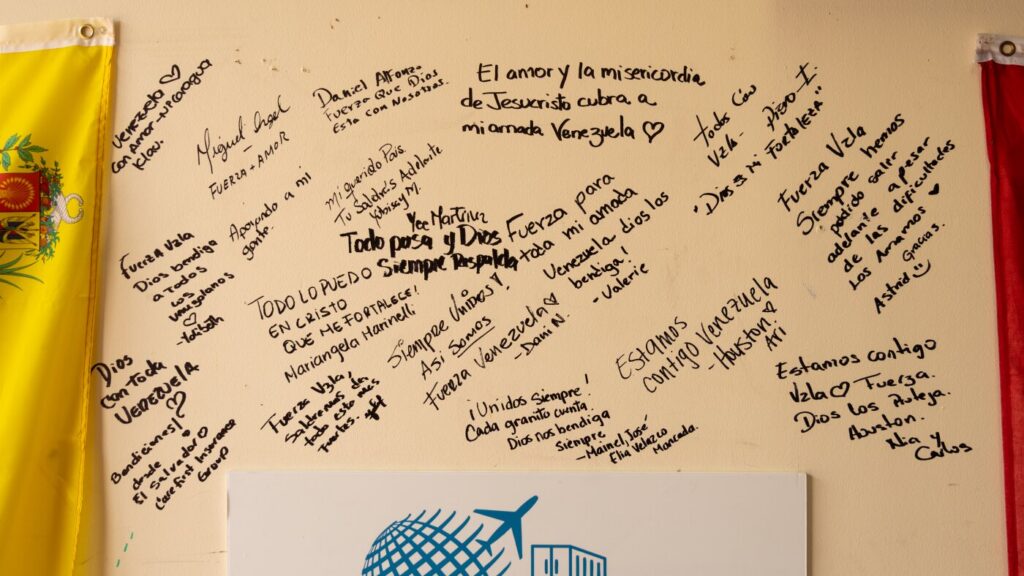 Venezuela ♡
con Amor - Nicaragua
Klau.
Miguel Angel
-
FUERZA + AMOR
Daniel Alfonzo
Fuerza Que Dios
Esta con Nosotros.
El amor y la misericordia
de Jesucristo cubra a
mi amada Venezuela ♡
Todos Con
Vzla -
"Dios es mi FORTALEZA"
Fuerza Vzla
Siempre hemos
podido salir
adelante a pesar
de las dificultades
Los Amamos ♥
Gacias.
Astrid
Mi querido País
Tu Saldrás Adelante
M.
Apoyando a mi
gente.
Yee Martinez
Todo pasa y Dios
Siempre Respalda
Fuerza para
toda mi amada
Venezuela dios los
bendiga!
- Valerie
FUERZA Vzla
Dios bendiga
a Todos
Los
Venezolanos
♡
TODO LO PUEDO
EN CRISTO
QUE ME FORTALECE!
Mariangela Marinelli
Siempre Unidos!
Así Somos
Fuerza Venezuela ♡
- Dani N.
Estamos
contigo Venezuela
- Houston ♡
Ari
Dios
Con Toda
VENEZUELA
♡
Bendiciones!
desde
El Salvador
Care First Insurance
Group
Fuerza Vzla,
Saldremos de
todo esto más
fuertes.
¡Unidos Siempre!
Cada granito cuenta.
Dios nos bendiga
siempre
- Mainel, José
Elia Velazco
Moncada.
Estamos contigo
Vzla ♡ Fuerza.
Dios los Proteja.
Houston.
Nia y
Carlos